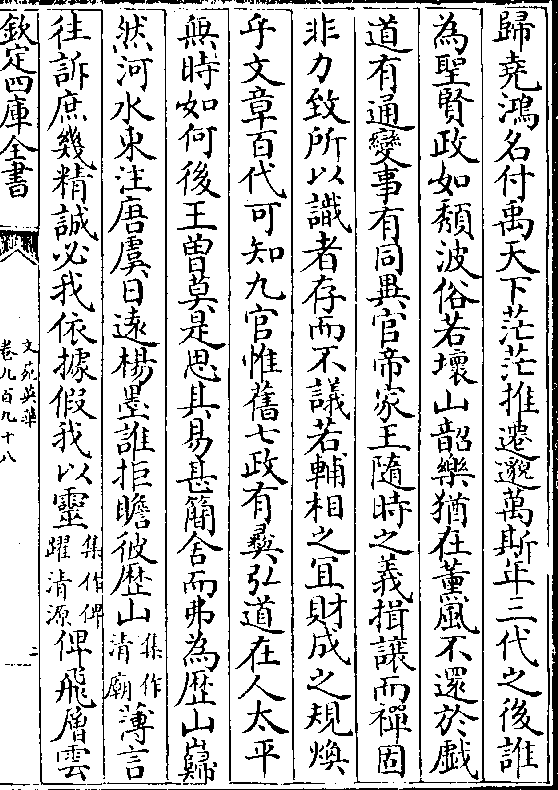 歸堯鴻名付禹天下茫茫推遷邈萬斯年三代之後誰
為聖賢政如頹波俗若壞山韶樂猶在薰風不還於戲
道有通變事有同異官帝家王隨時之義揖讓而禪固
非力致所以識者存而不議若輔相之宜財成之規煥
乎文章百代可知九官惟舊七政有彛弘道在人太平
無時如何後王曽莫是思具易甚簡舍而弗為歴山巋
然河水東注唐虞日遠楊墨誰拒瞻彼歴山集作清廟薄言
往訴庶幾精誠必我依據假我以靈集作俾躍清源俾飛層雲
欽定四庫全書
文苑英華
卷九百九十八
二